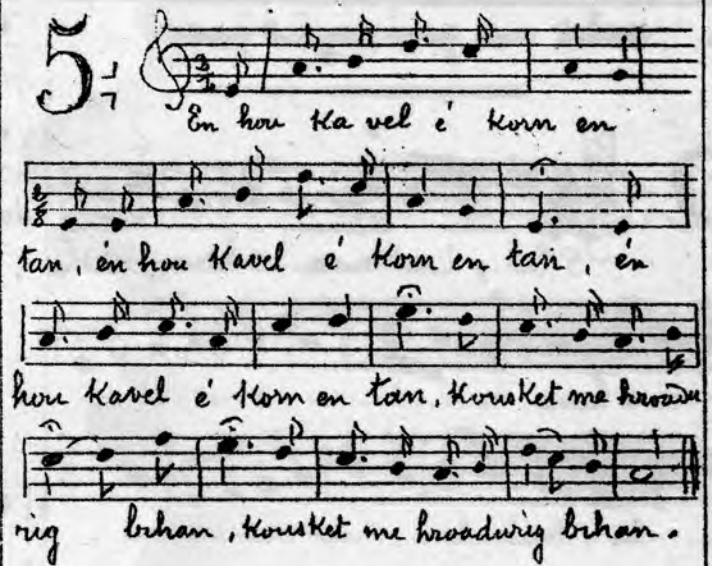 5
En hou Kavel é Korn en
tan, én hou Kavel é Korn en tan, én
hou Kavel é Korn en tan, Kousket me hroadu
rig bihan, Kousket me hroadurig bihan.